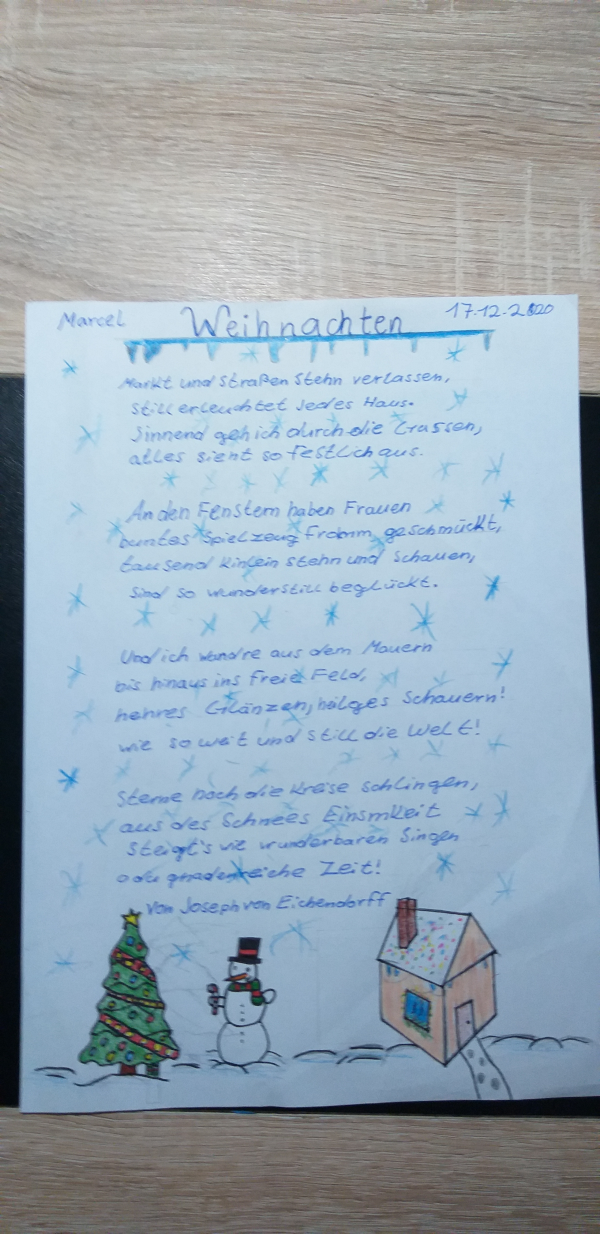 Marcel
Weihnachten
17.12.2020
Markt und Straßen Stehn verlassen,
Still erleuchtet Jedes Haus.
Sinnend geh ich durch die Gassen,
alles sieht so festlich aus.
An den Fenstern haben Frauen
buntes Spielzeug fromm geschmückt,
tausend Kinlein stehn und Schauen,
Sind so wunderstill beglückt.
Und ich wandre aus dem Mauern
bis hinaus ins Freie Feld,
hehres Glänzen, heilges Schauern!
wie so weit und Still die Welt!
Sterne hoch die Kreise Schlingen,
aus des Schnees Einsmkeit
Steigt's wie wunderbaren Singen
o du gnadenreiche Zeit!
von Joseph von Eichendorff